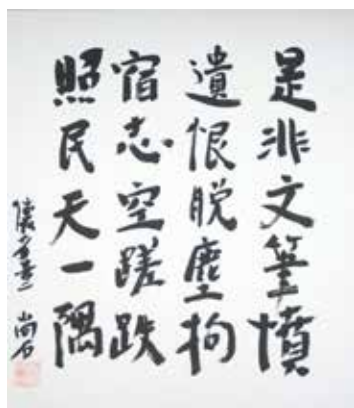 是非文筆憤
遺恨脱塵拘
宿志空蹉跌
照民天一隅
尚石